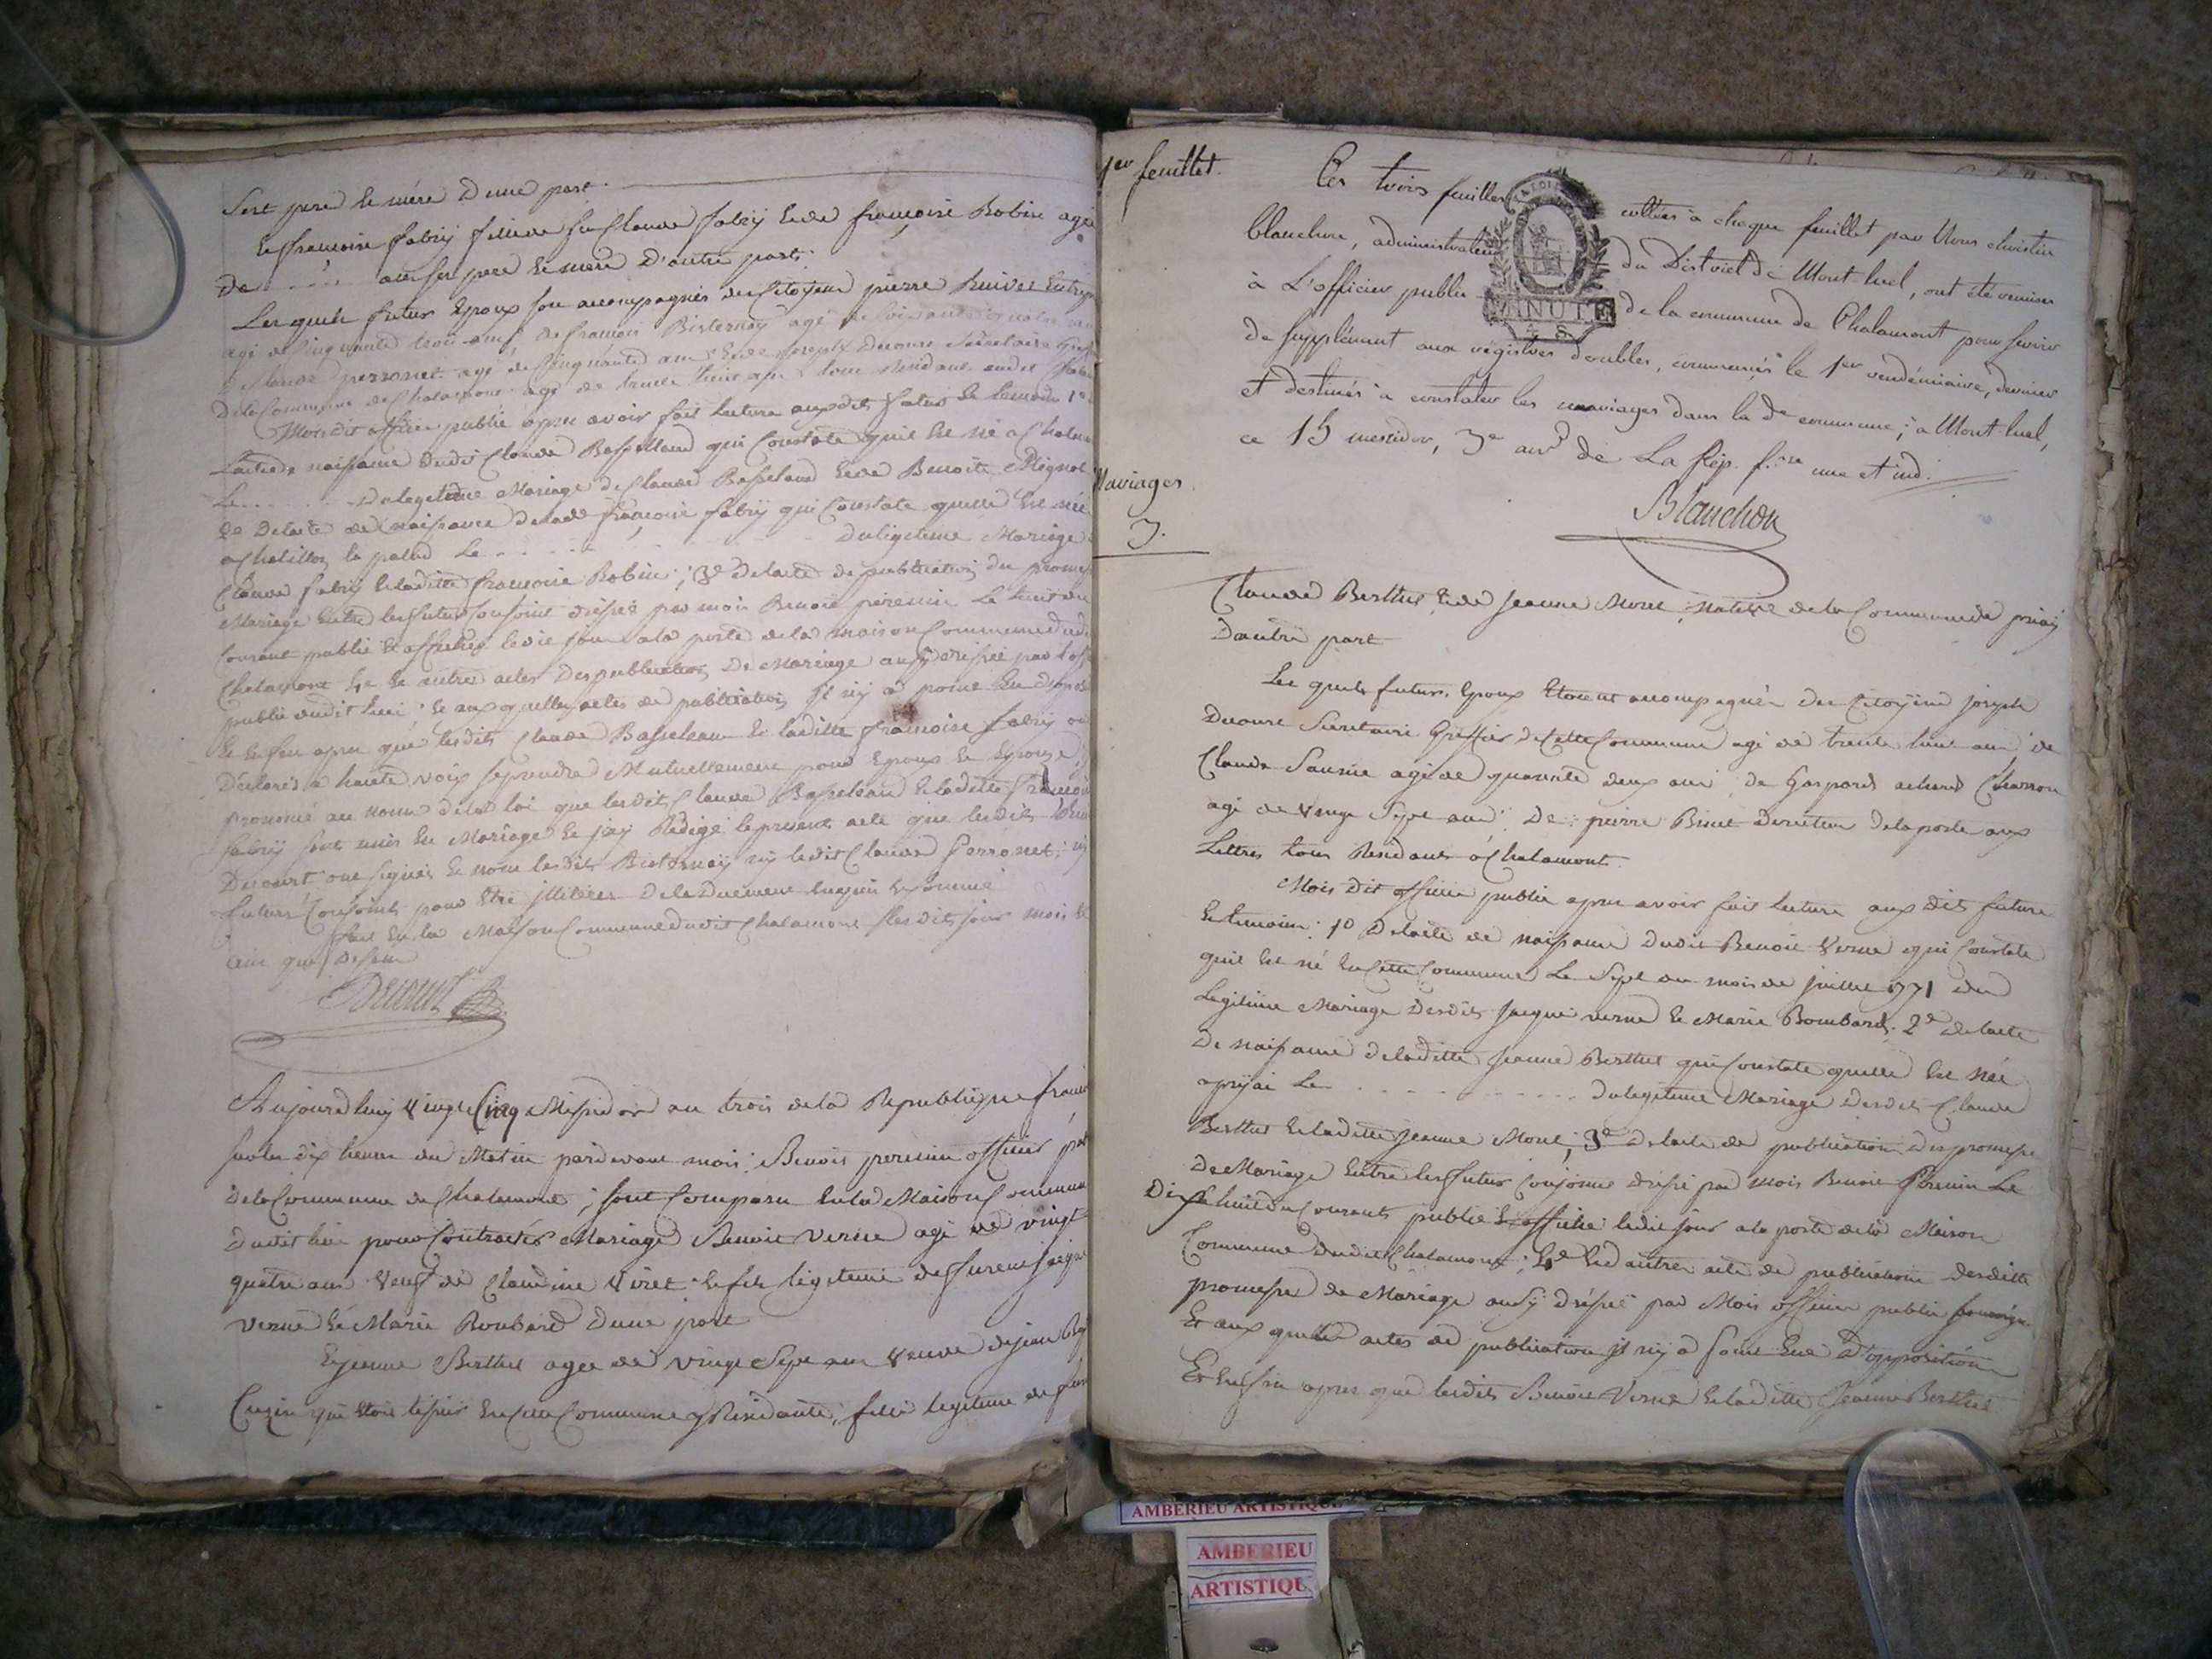 Sest pere et mére D'une part.
Et francoise fabrij fille de feu Claude fabrij et de françoise Robin agée
De . . . . aussi pere et mere D'autre part.
Les quels futurs Epoux son accompagnés du Citoyen pierre
agé de Cinquante trois ans, de francois Bisternay agé de soixante quatre ans
de Claude perronet agé de Cinquante ans et de joseph Decourt Secretaire
Dela Commune de Chalamont agé de trente huit ans tous Residant audit
Mois dit officier public apres avoir fait Lecture auxdits futurs et temoins 1o
Lacte de naissance dudit Claude Basseland qui Constate quil Est né a
Le . . . . Dulegitime Mariage de Claude Basseland et de Benoite Mignot
2o Delacte de Naissance de lad françoise fabrij qui Constate quelle Est née
a Chatillon la palud Le . . . . Dulegitime Mariage
Claude fabrij Et laditte francoise Robin ; 3o Delacte de publication du promesse
Mariage Entre les futurs Conjoint dréssé par mois Benoit peressin Le huit du
Courant publié et affiché ledit jour ala porte dela maison Commune dudit
Chalamont Et autres actes Des publication De Mariage aussy dréssé par
public dudit lieu ; et aux quelles actes de publication il nij a point
Et Enfin apres que lesdits Claude Basseland Et laditte francoise fabrij
Déclarés a haute voix se prendre Mutuellement pour Epoux Et Epouse
prononcé au nom dela loi que lesdit Claude Basseland Et laditte
fabrij sont unis En Mariage Et jaij Rédigé le present acte que lesdits
Decourt ont signés Et non lesdits Bisternaij nij ledit Claude Perronet ; nij
futurs Conjoints pour Etre illiterés Dele Duement Enquis Et Sommé
fait En la Maison Commune dudit Chalamont les dits jour mois Et
an que Dessus
Decourt
Aujourdhuij Vingt Cinq Messidor an trois dela Republique
sur les dix heures du Matin pardevant mois Benois peressin officier
dela Commune de Chalamont ; sont Comparu En la Maison Commune
dudit lieu pour Contracter Mariage Benoit Verne agé de vingt
quatre ans Veuf de Claudine Viret Et fils legitime de
Verne Et Marie Bombard D'une part
Et jeanne Berthet agée de vingt Sept ans Veuve de jean
Cuzin qui Etoit En Cette Commune y Residante, fille legitime de
1er feuillet.
Ces trois feuillets cottées à chaque feuillet par Nous christin
blanchon, administrateur du District de Mont-luel, ont été remises
à L'officier public de la commune de Chalamont pour servir
MINUTE
4 S
de supplément aux régistres doubles, commencés le 1er vendémiaire, dernier
et destinés à constater les mariages dans la de commune ; à Mont-luel,
ce 15 messidor, 3e an de La Rép. f.se une et ind.
Blanchon
Mariages.
3.
Claude Berthet Et de Jeanne Morel ; Native de la Commune de priaij
D'autre part
Les quels futurs Epoux Etoient accompagnés Des Citoyens joseph
Decourt Secretaire Greffier de Cette Commune agé de trente huit ans de
Claude Saunié agé de quarante deux ans ; de Gaspard Charron
agé de Vingt Sept ans ; De pierre Binet Directeur dela poste aux
Lettres tous Residants à Chalamont.
Mois Dit officier public apres avoir fait Lecture aux Dits futurs
Et temoins : 1o Delacte de Naissance Dudit Benoit Verne qui Constate
quil Est né En Cette Commune Le Sept du mois de juillet 1771 du
Legitime Mariage Desdits Jacque verne Et Marie Bombard ; 2e delacte
De naissance delad itte Jeanne Berthet qui Constate quelle Est Née
apriai Le . . . . . . . . . . . . Du legitime Mariage Desdits Claude
Berthet Et laditte Jeanne Morel ; 3e Delacte de publication Des promesse
De Mariage Entre les futurs Conjoints dréssé par mois Benoit Peressin Le
Dixhuit du Courant publié Et affiché ledit jour ala porte dela Maison
Commune dudit Chalamont ; Et autre acte de publication Desditte
promesse de Mariage aussÿ dréssé par Mois officier public soussigné
Et aux quelles actes de publication il nij a point Eue D'opposition
Et Enfin apres que lesdits Benoit Verne Et laditte Jeanne Berthet
AMBERIEU ARTISTIQUE
AMBERIEU
ARTISTIQU